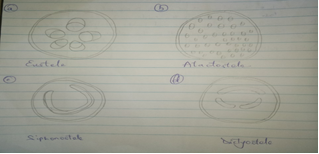 (a)
(b)
Eustele
Atactostele
(c)
(d)
Siphonostele
Dictyostele